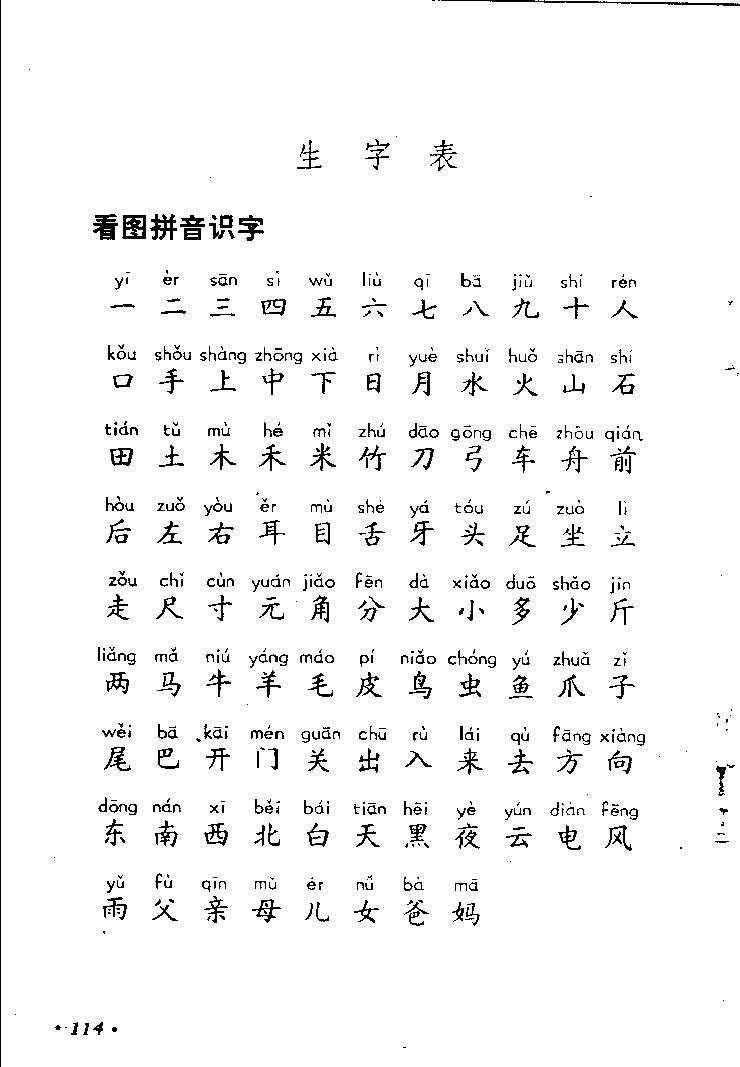 生 字 表
看图拼音识字
yī èr sān sì wǔ liù qī bā jiǔ shí rén
一 二 三 四 五 六 七 八 九 十 人
kǒu shǒu shàng zhōng xià rì yuè shuǐ huǒ shān shí
口 手 上 中 下 日 月 水 火 山 石
tián tǔ mù hé mǐ zhú dāo gōng chē zhōu qián
田 土 木 禾 米 竹 刀 弓 车 舟 前
hòu zuǒ yòu ěr mù shé yá tóu zú zuò lì
后 左 右 耳 目 舌 牙 头 足 坐 立
zǒu chǐ cùn yuán jiǎo fēn dà xiǎo duō shǎo jīn
走 尺 寸 元 角 分 大 小 多 少 斤
liǎng mǎ niú yáng máo pí niǎo chóng yú zhuǎ zǐ
两 马 牛 羊 毛 皮 鸟 虫 鱼 爪 子
wěi bā kāi mén guān chū rù lái qù fāng xiàng
尾 巴 开 门 关 出 入 来 去 方 向
dōng nán xī běi bái tiān hēi yè yún diàn fēng
东 南 西 北 白 天 黑 夜 云 电 风
yǔ fù qīn mǔ ér nǚ bà mā
雨 父 亲 母 儿 女 爸 妈
·114·